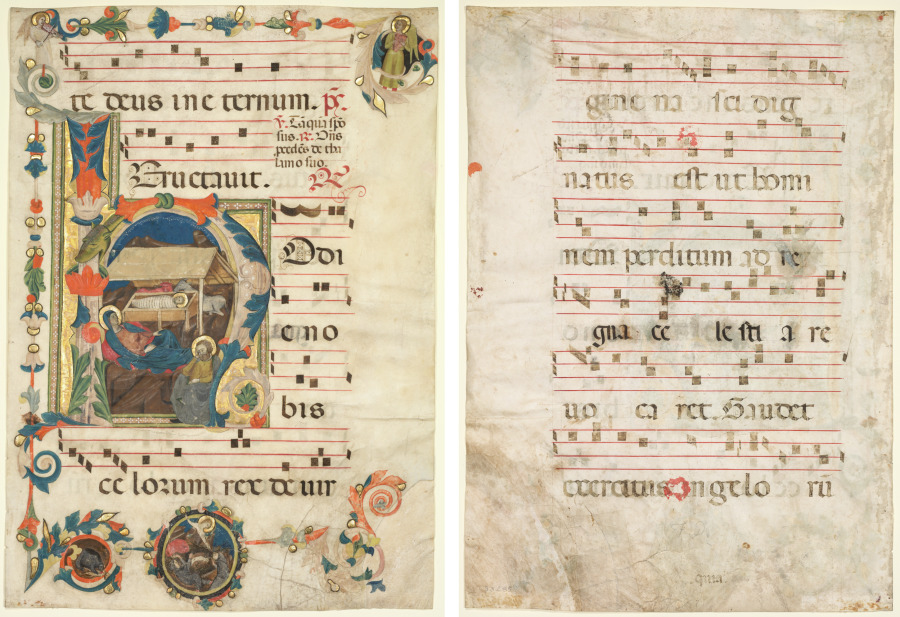 te deus in e ternum. p̄s.
℣. Tāquā spō
sus. ℟. Dn̄s
procedēs de tha
lamo suo.
Eructauit. ℟
HOdi
e no
bis
ce lorum rex de uir
gine na sci dig
natus est ut homi
nem perditum ad re
gna ce le sti a re
uo ca ret. Gaudet
exercitus angelo rū
quia